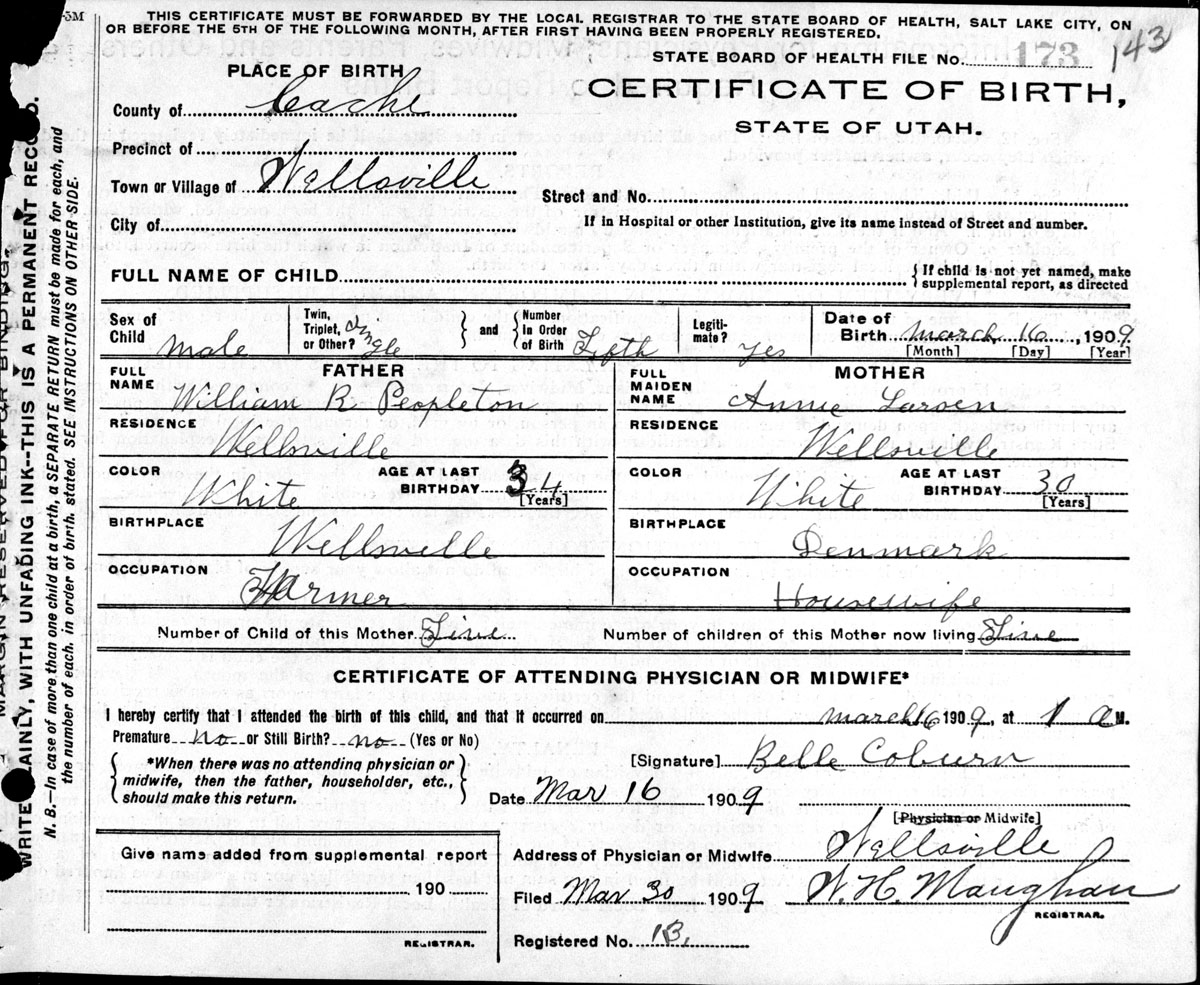 3M
THIS CERTIFICATE MUST BE FORWARDED BY THE LOCAL REGISTRAR TO THE STATE BOARD OF HEALTH, SALT LAKE CITY, ON
OR BEFORE THE 5TH OF THE FOLLOWING MONTH, AFTER FIRST HAVING BEEN PROPERLY REGISTERED.
STATE BOARD OF HEALTH FILE NO. 173 143
PLACE OF BIRTH
CERTIFICATE OF BIRTH,
County of Cache
STATE OF UTAH.
Precinct of
Town or Village of Wellsville
Street and No.
City of
If in Hospital or other Institution, give its name instead of Street and number.
FULL NAME OF CHILD { If child is not yet named, make
supplemental report, as directed
Sex of Child Male Twin, Triplet, or Other? Single } and { Number In Order of Birth Fifth Legiti-mate? yes Date of Birth March 16, 1909
[Month] [Day] [Year]
FATHER MOTHER
FULL NAME William R Peopleton FULL MAIDEN NAME Annie Larsen
RESIDENCE Wellsville RESIDENCE Wellsville
COLOR White AGE AT LAST BIRTHDAY 34 [Years] COLOR White AGE AT LAST BIRTHDAY 30 [Years]
BIRTHPLACE Wellsville BIRTHPLACE Denmark
OCCUPATION Farmer OCCUPATION Housewife
Number of Child of this Mother Five Number of children of this Mother now living Five
CERTIFICATE OF ATTENDING PHYSICIAN OR MIDWIFE*
I hereby certify that I attended the birth of this child, and that it occurred on March 16 1909, at 1 a M.
Premature no or Still Birth? no (Yes or No)
{ *When there was no attending physician or
midwife, then the father, householder, etc.,
should make this return. }
[Signature] Belle Coburn
Date Mar 16 1909
[Physician or Midwife]
Give name added from supplemental report
Address of Physician or Midwife Wellsville
190
Filed Mar 30 1909 W. H. Maughan
REGISTRAR.
REGISTRAR.
Registered No. 13.
MARGIN RESERVED FOR BINDING.
WRITE PLAINLY, WITH UNFADING INK--THIS IS A PERMANENT RECORD.
N. B.—In case of more than one child at a birth, a SEPARATE RETURN must be made for each, and
the number of each, in order of birth, stated. SEE INSTRUCTIONS ON OTHER SIDE.